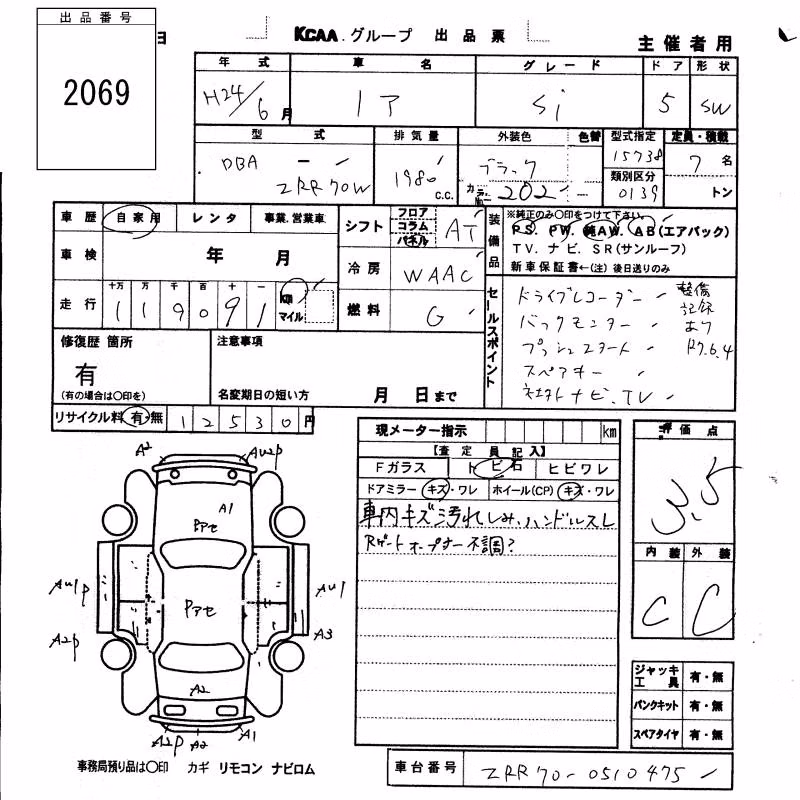 出品番号
2069
日
KCAA.グループ 出品票
主催者用
年式 車名 グレード ドア 形状
H24/6月 Si 5 SW
型式 排気量 外装色 色替 型式指定 定員・積載
DBA － ZRR70W 1980 c.c. ブラック 15738 7名
カラーNo. 202 類別区分 0139 トン
車歴 自家用 レンタ 事業.営業車
シフト フロア コラム パネル AT
装備品
※純正のみ○印をつけて下さい。
PS. PW. 純AW. AB(エアバック)
TV. ナビ. SR(サンルーフ)
新車保証書←(注) 後日送りのみ
車検 年 月
冷房 WAAC
走行 十万 万 千 百 十 一
119091 km マイル
燃料 G
セールスポイント
ドライブレコーダー
バックモニター
プッシュスタート
スペアキー
社外ナビ.TV
整備
記録
あり
R7.6.4
修復歴 箇所
有
(有の場合は○印を)
注意事項
名変期日の短い方 月 日まで
リサイクル料 有・無 12530円
現メーター指示 km
【査定員記入】
Fガラス トビ石 ヒビワレ
ドアミラー キズ・ワレ ホイール(CP) キズ・ワレ
車内キズ汚れしみ.ハンドルスレ
Rゲートオープナー不調?
評価点
3.5
内装 外装
C C
ジャッキ 工具 有・無
パンクキット 有・無
スペアタイヤ 有・無
A2 AU2P
A1
Pアセ
AU1P Pアセ AU1
A2P A3
A2
A2P A2 A1
事務局預り品は○印 カギ リモコン ナビロム
車台番号 ZRR70-0510475